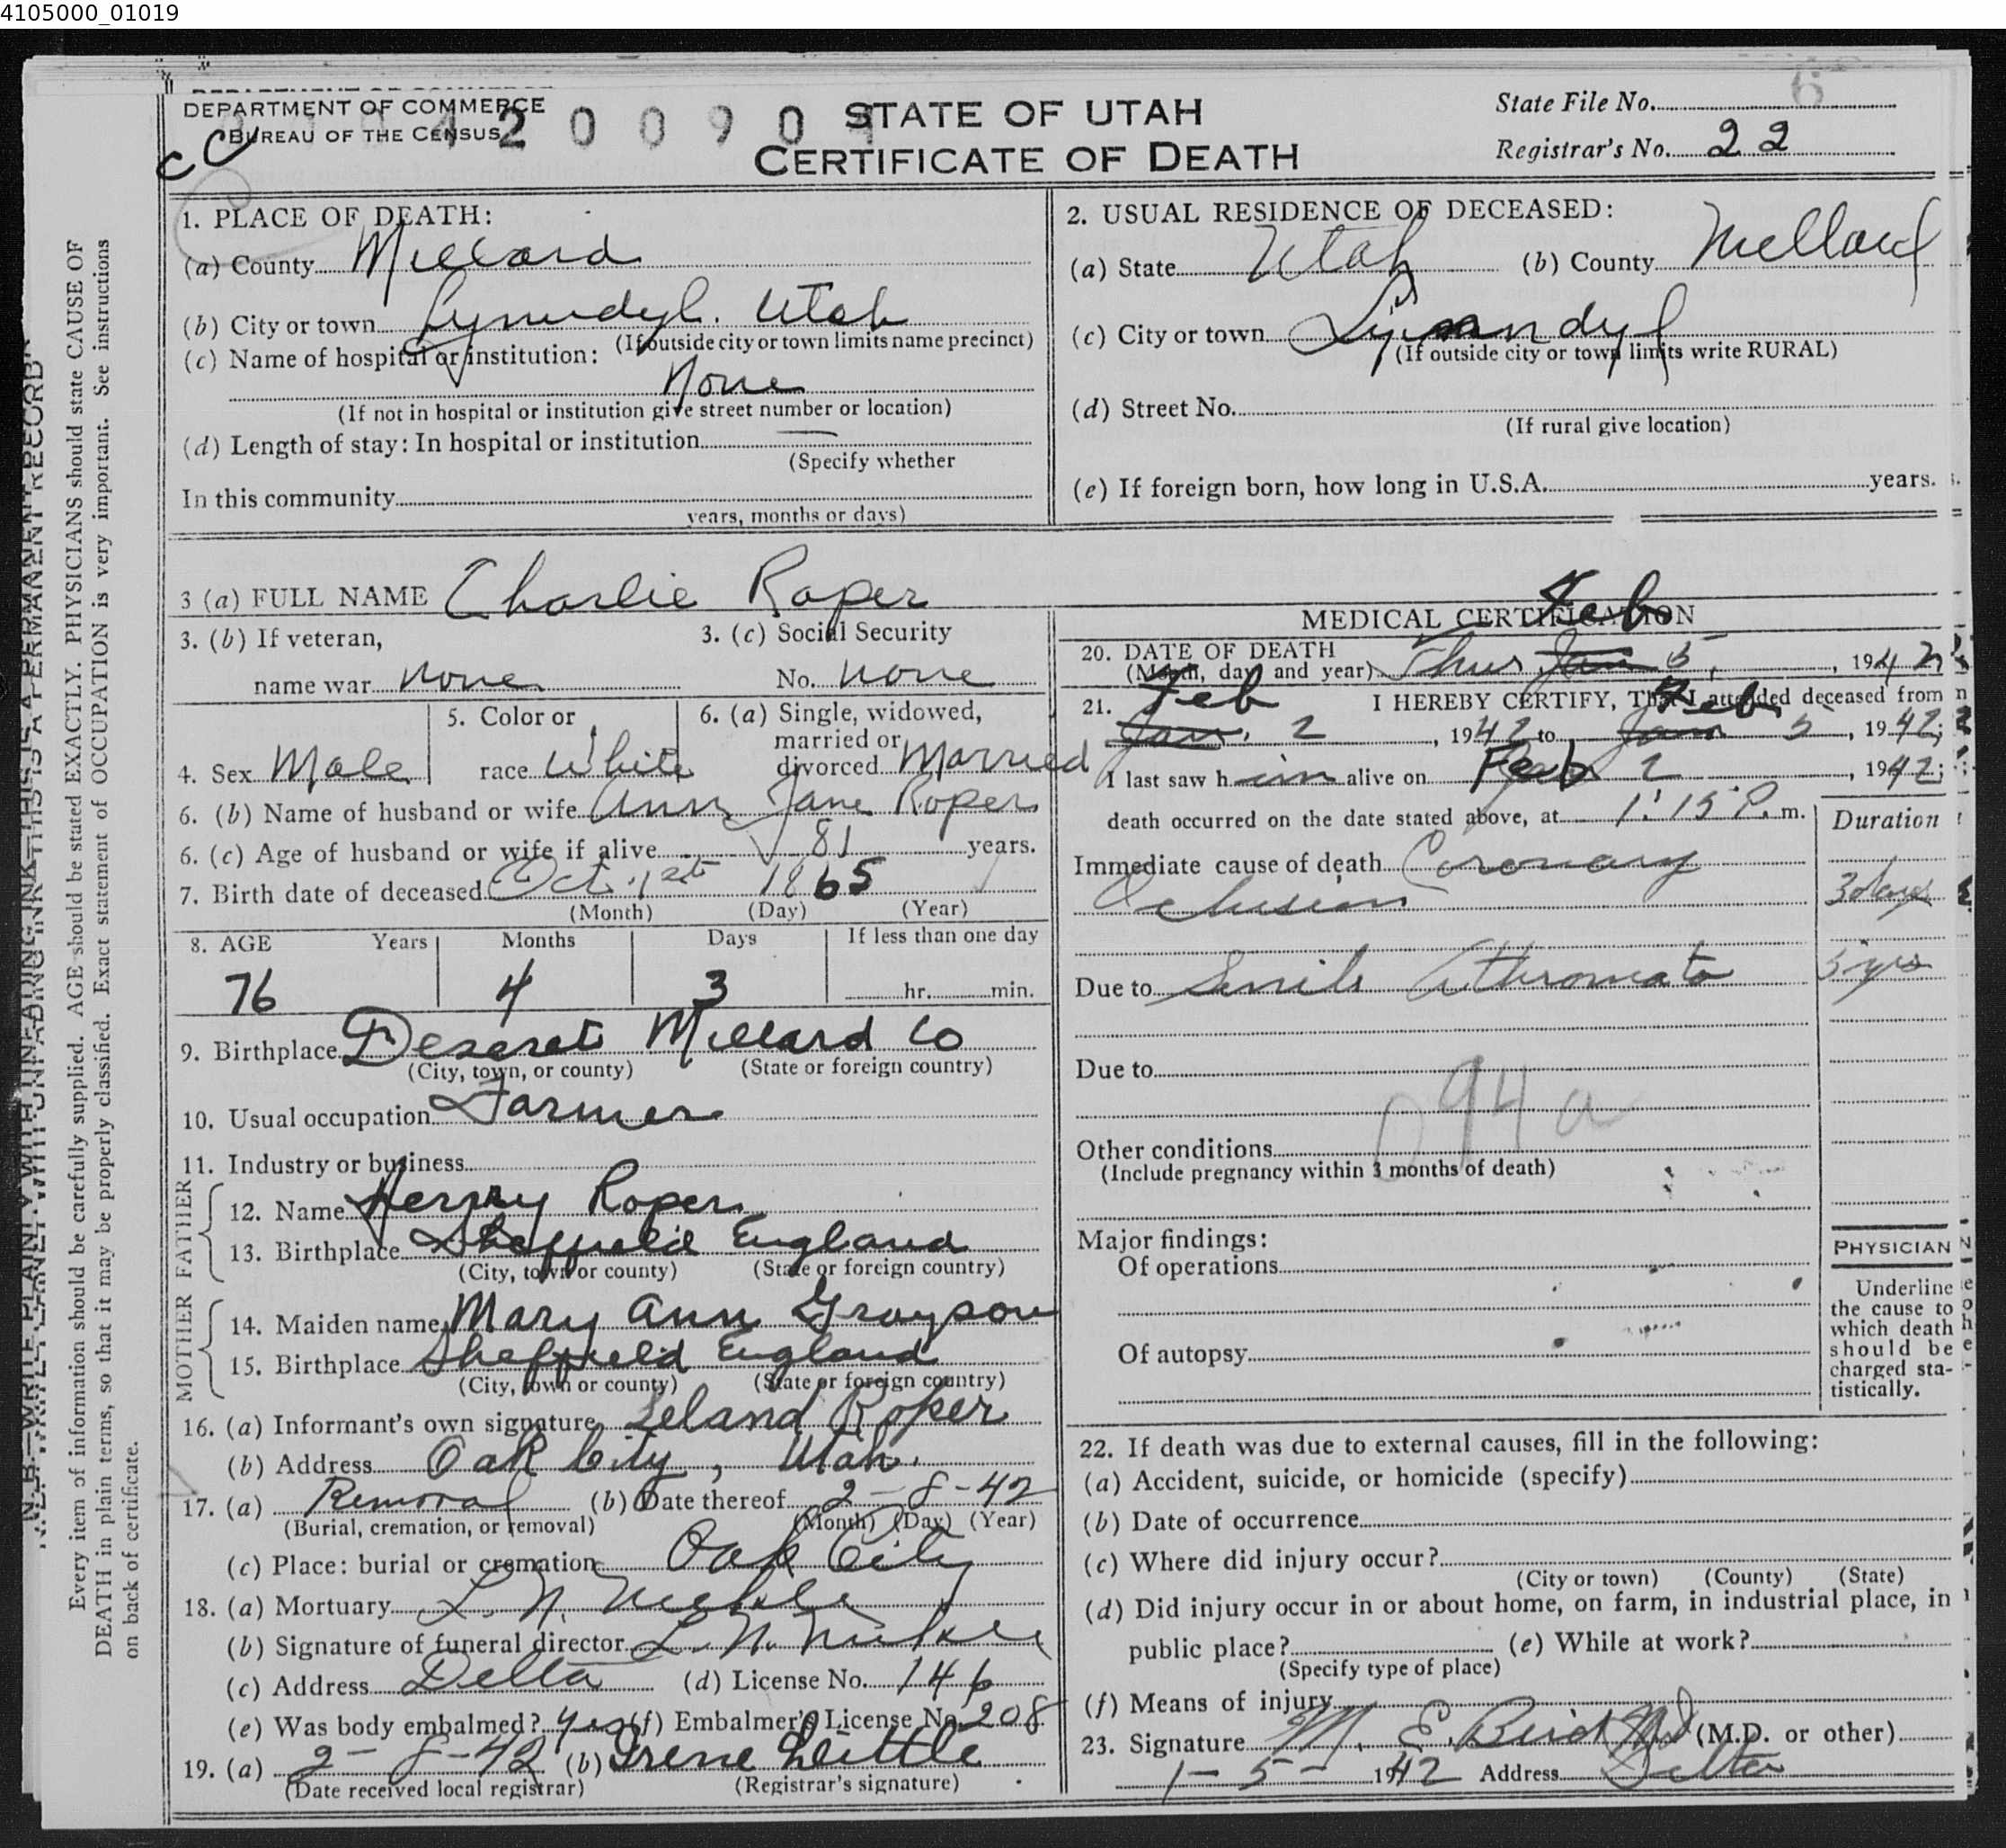 4105000_01019
DEPARTMENT OF COMMERCE
BUREAU OF THE CENSUS
420090
STATE OF UTAH
CERTIFICATE OF DEATH
State File No. 6
Registrar's No. 22
1. PLACE OF DEATH:
(a) County Millard
(b) City or town Lynndyl. Utah
(If outside city or town limits name precinct)
(c) Name of hospital or institution:
None
(If not in hospital or institution give street number or location)
(d) Length of stay: In hospital or institution —
(Specify whether
In this community
years, months or days)
2. USUAL RESIDENCE OF DECEASED:
(a) State Utah (b) County Millard
(c) City or town Lynndyl
(If outside city or town limits write RURAL)
(d) Street No.
(If rural give location)
(e) If foreign born, how long in U.S.A. years.
3 (a) FULL NAME Charlie Roper
3. (b) If veteran,
name war none
3. (c) Social Security
No. none
4. Sex Male
5. Color or
race White
6. (a) Single, widowed,
married or
divorced Married
6. (b) Name of husband or wife Ann Jane Roper
6. (c) Age of husband or wife if alive 81 years.
7. Birth date of deceased Oct. 1st 1865
(Month) (Day) (Year)
8. AGE Years Months Days If less than one day
76 4 3 hr. min.
9. Birthplace Deseret Millard Co
(City, town, or county) (State or foreign country)
10. Usual occupation Farmer
11. Industry or business
FATHER
12. Name Henry Roper
13. Birthplace Sheffield England
(City, town or county) (State or foreign country)
MOTHER
14. Maiden name Mary Ann Grayson
15. Birthplace Sheffield England
(City, town or county) (State or foreign country)
16. (a) Informant's own signature Leland Roper
(b) Address Oak City, Utah.
17. (a) Removal (b) Date thereof 2-8-42
(Burial, cremation, or removal) (Month) (Day) (Year)
(c) Place: burial or cremation Oak City
18. (a) Mortuary L. N.
(b) Signature of funeral director L. N.
(c) Address Delta (d) License No. 146
(e) Was body embalmed? yes (f) Embalmer's License No. 208
19. (a) 2-8-42 (b) Irene Little
(Date received local registrar) (Registrar's signature)
MEDICAL CERTIFICATION
Feb
20. DATE OF DEATH
(Month, day and year) Thus Jan 5, 1942
21. I HEREBY CERTIFY, That I attended deceased from
Feb Feb
Jan. 2, 1942 to Jan 5, 1942;
I last saw him alive on Feb 2, 1942;
death occurred on the date stated above, at 1:15 P. m.
Duration
Immediate cause of death Coronary
Oclusion 3 days
Due to Senile Athromato 5 yrs
Due to
094a
Other conditions
(Include pregnancy within 3 months of death)
Major findings:
Of operations
Of autopsy
PHYSICIAN
Underline
the cause to
which death
should be
charged sta-
tistically.
22. If death was due to external causes, fill in the following:
(a) Accident, suicide, or homicide (specify)
(b) Date of occurrence
(c) Where did injury occur?
(City or town) (County) (State)
(d) Did injury occur in or about home, on farm, in industrial place, in
public place? (e) While at work?
(Specify type of place)
(f) Means of injury
23. Signature M. E. Bird MD (M.D. or other)
1-5-1942 Address Delta
N.B.—WRITE PLAINLY WITH UNFADING INK—THIS IS A PERMANENT RECORD
Every item of information should be carefully supplied. AGE should be stated EXACTLY. PHYSICIANS should state CAUSE OF
DEATH in plain terms, so that it may be properly classified. Exact statement of OCCUPATION is very important. See instructions
on back of certificate.